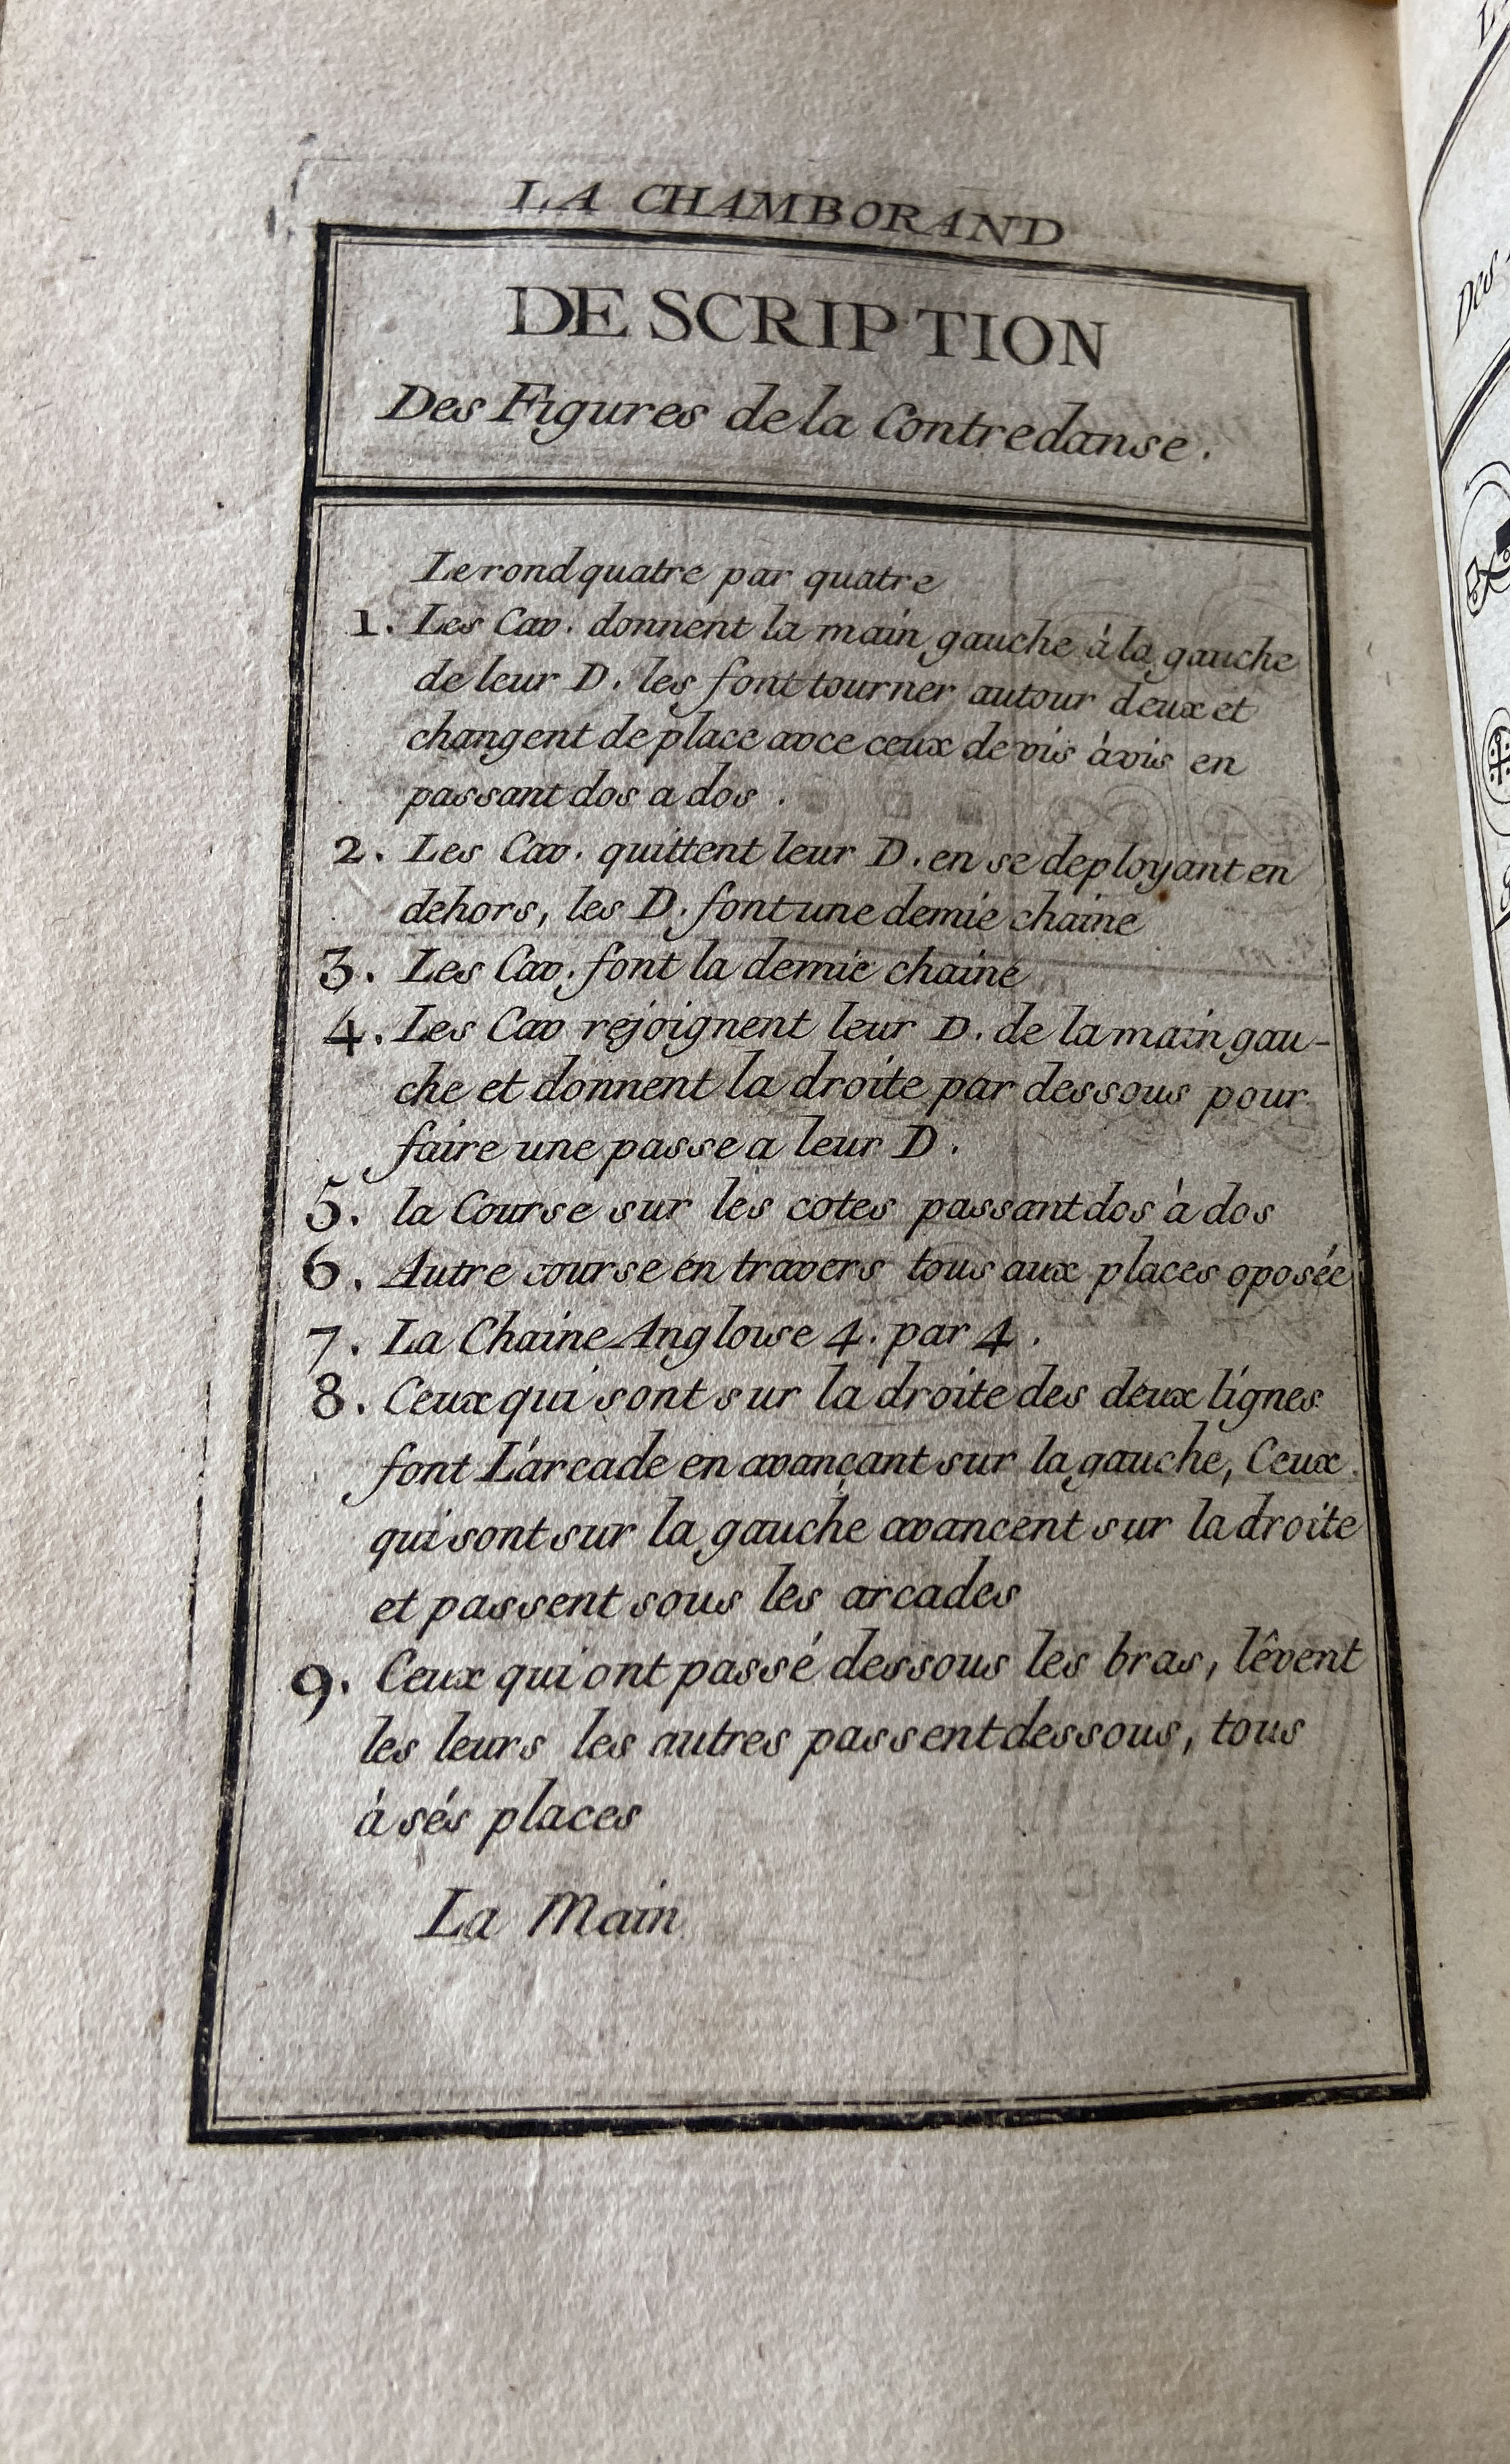 LA CHAMBORAND
DESCRIPTION
Des Figures de la Contredanse.
Le rond quatre par quatre
1. Les Cav. donnent la main gauche à la gauche
de leur D. les font tourner autour deux et
changent de place avce ceux de vis àvis en
passant dos a dos.
2. Les Cav. quittent leur D. en se deployant en
dehors, les D. font une demie chaine
3. Les Cav. font la demie chaine
4. Les Cav rejoignent leur D. de la main gau-
che et donnent la droite par dessous pour
faire une passe a leur D.
5. la Course sur les cotes passant dos à dos
6. Autre course en travers tous aux places oposée
7. La Chaine Angloise 4. par 4.
8. Ceux qui sont sur la droite des deux lignes
font L'arcade en avançant sur la gauche, Ceux
qui sont sur la gauche avancent sur la droite
et passent sous les arcades
9. Ceux qui ont passé dessous les bras, lêvent
les leurs les autres passent dessous, tous
à sés places
La Main
Des